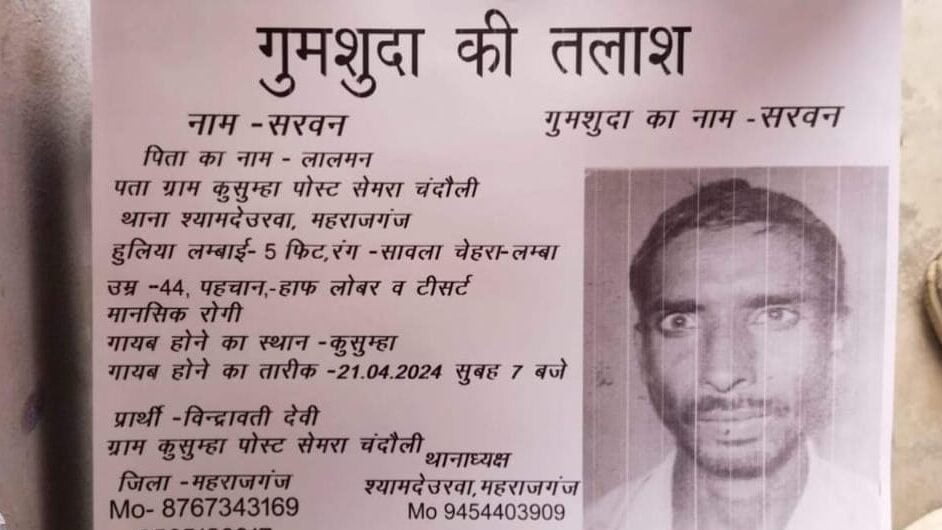 गुमशुदा की तलाश
नाम -सरवन
गुमशुदा का नाम -सरवन
पिता का नाम - लालमन
पता ग्राम कुसुम्हा पोस्ट सेमरा चंदौली
थाना श्यामदेउरवा, महराजगंज
हुलिया लम्बाई- 5 फिट,रंग -सावला चेहरा-लम्बा
उम्र -44, पहचान,-हाफ लोबर व टीसर्ट
मानसिक रोगी
गायब होने का स्थान -कुसुम्हा
गायब होने का तारीक -21.04.2024 सुबह 7 बजे
प्रार्थी -विन्द्रावती देवी
ग्राम कुसुम्हा पोस्ट सेमरा चंदौली
जिला -महराजगंज
Mo- 8767343169
थानाध्यक्ष
श्यामदेउरवा,महराजगंज
Mo 9454403909